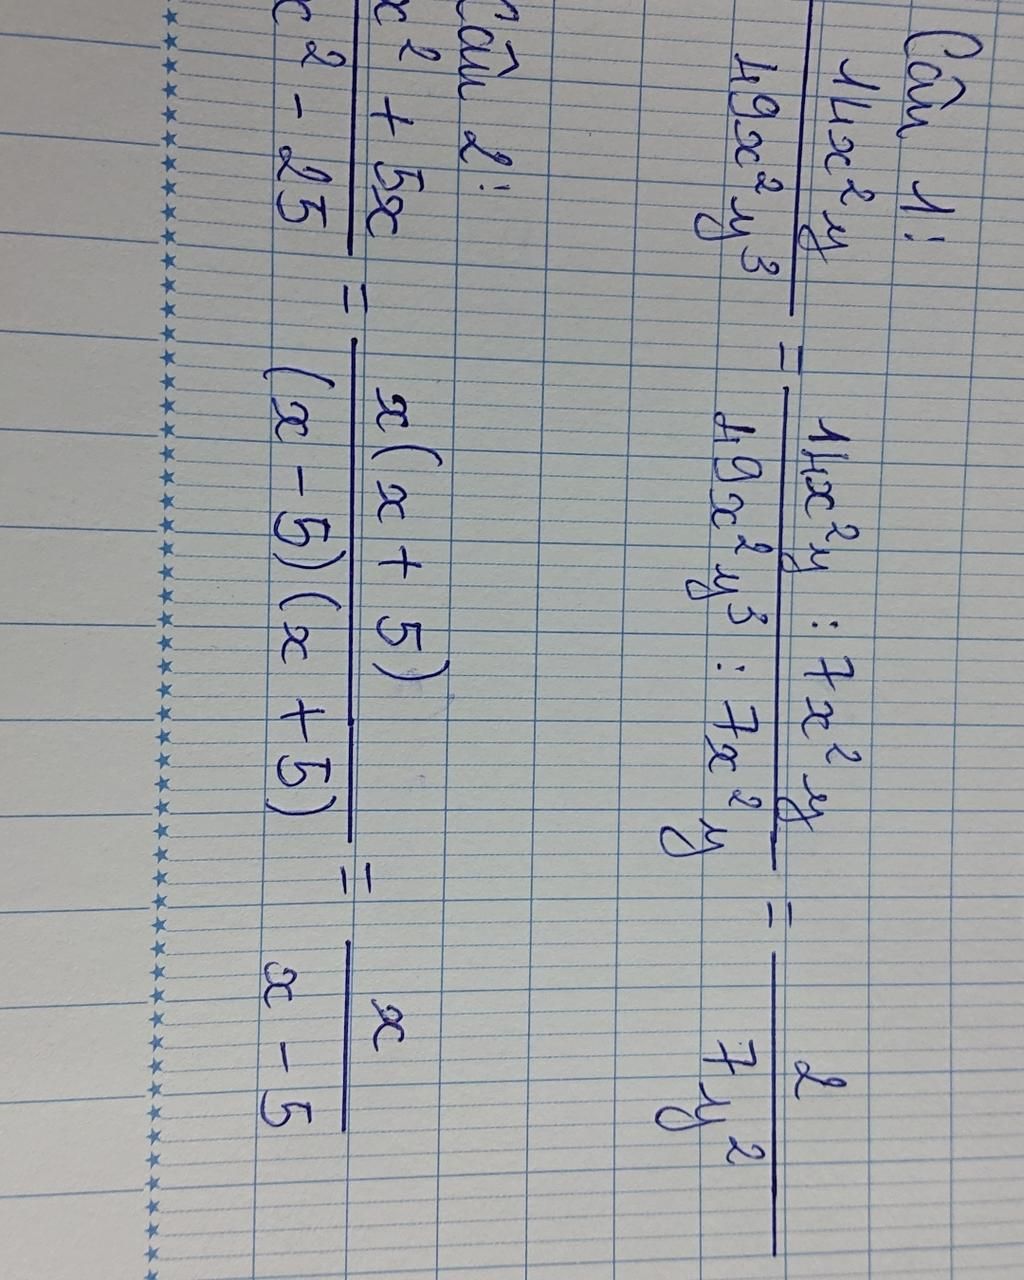 Câu 1:
14x²y / 49x²y³ = 14x²y : 7x²y / 49x²y³ : 7x²y = 2 / 7y²
Câu 2:
x² + 5x / x² - 25 = x(x + 5) / (x - 5)(x + 5) = x / x - 5